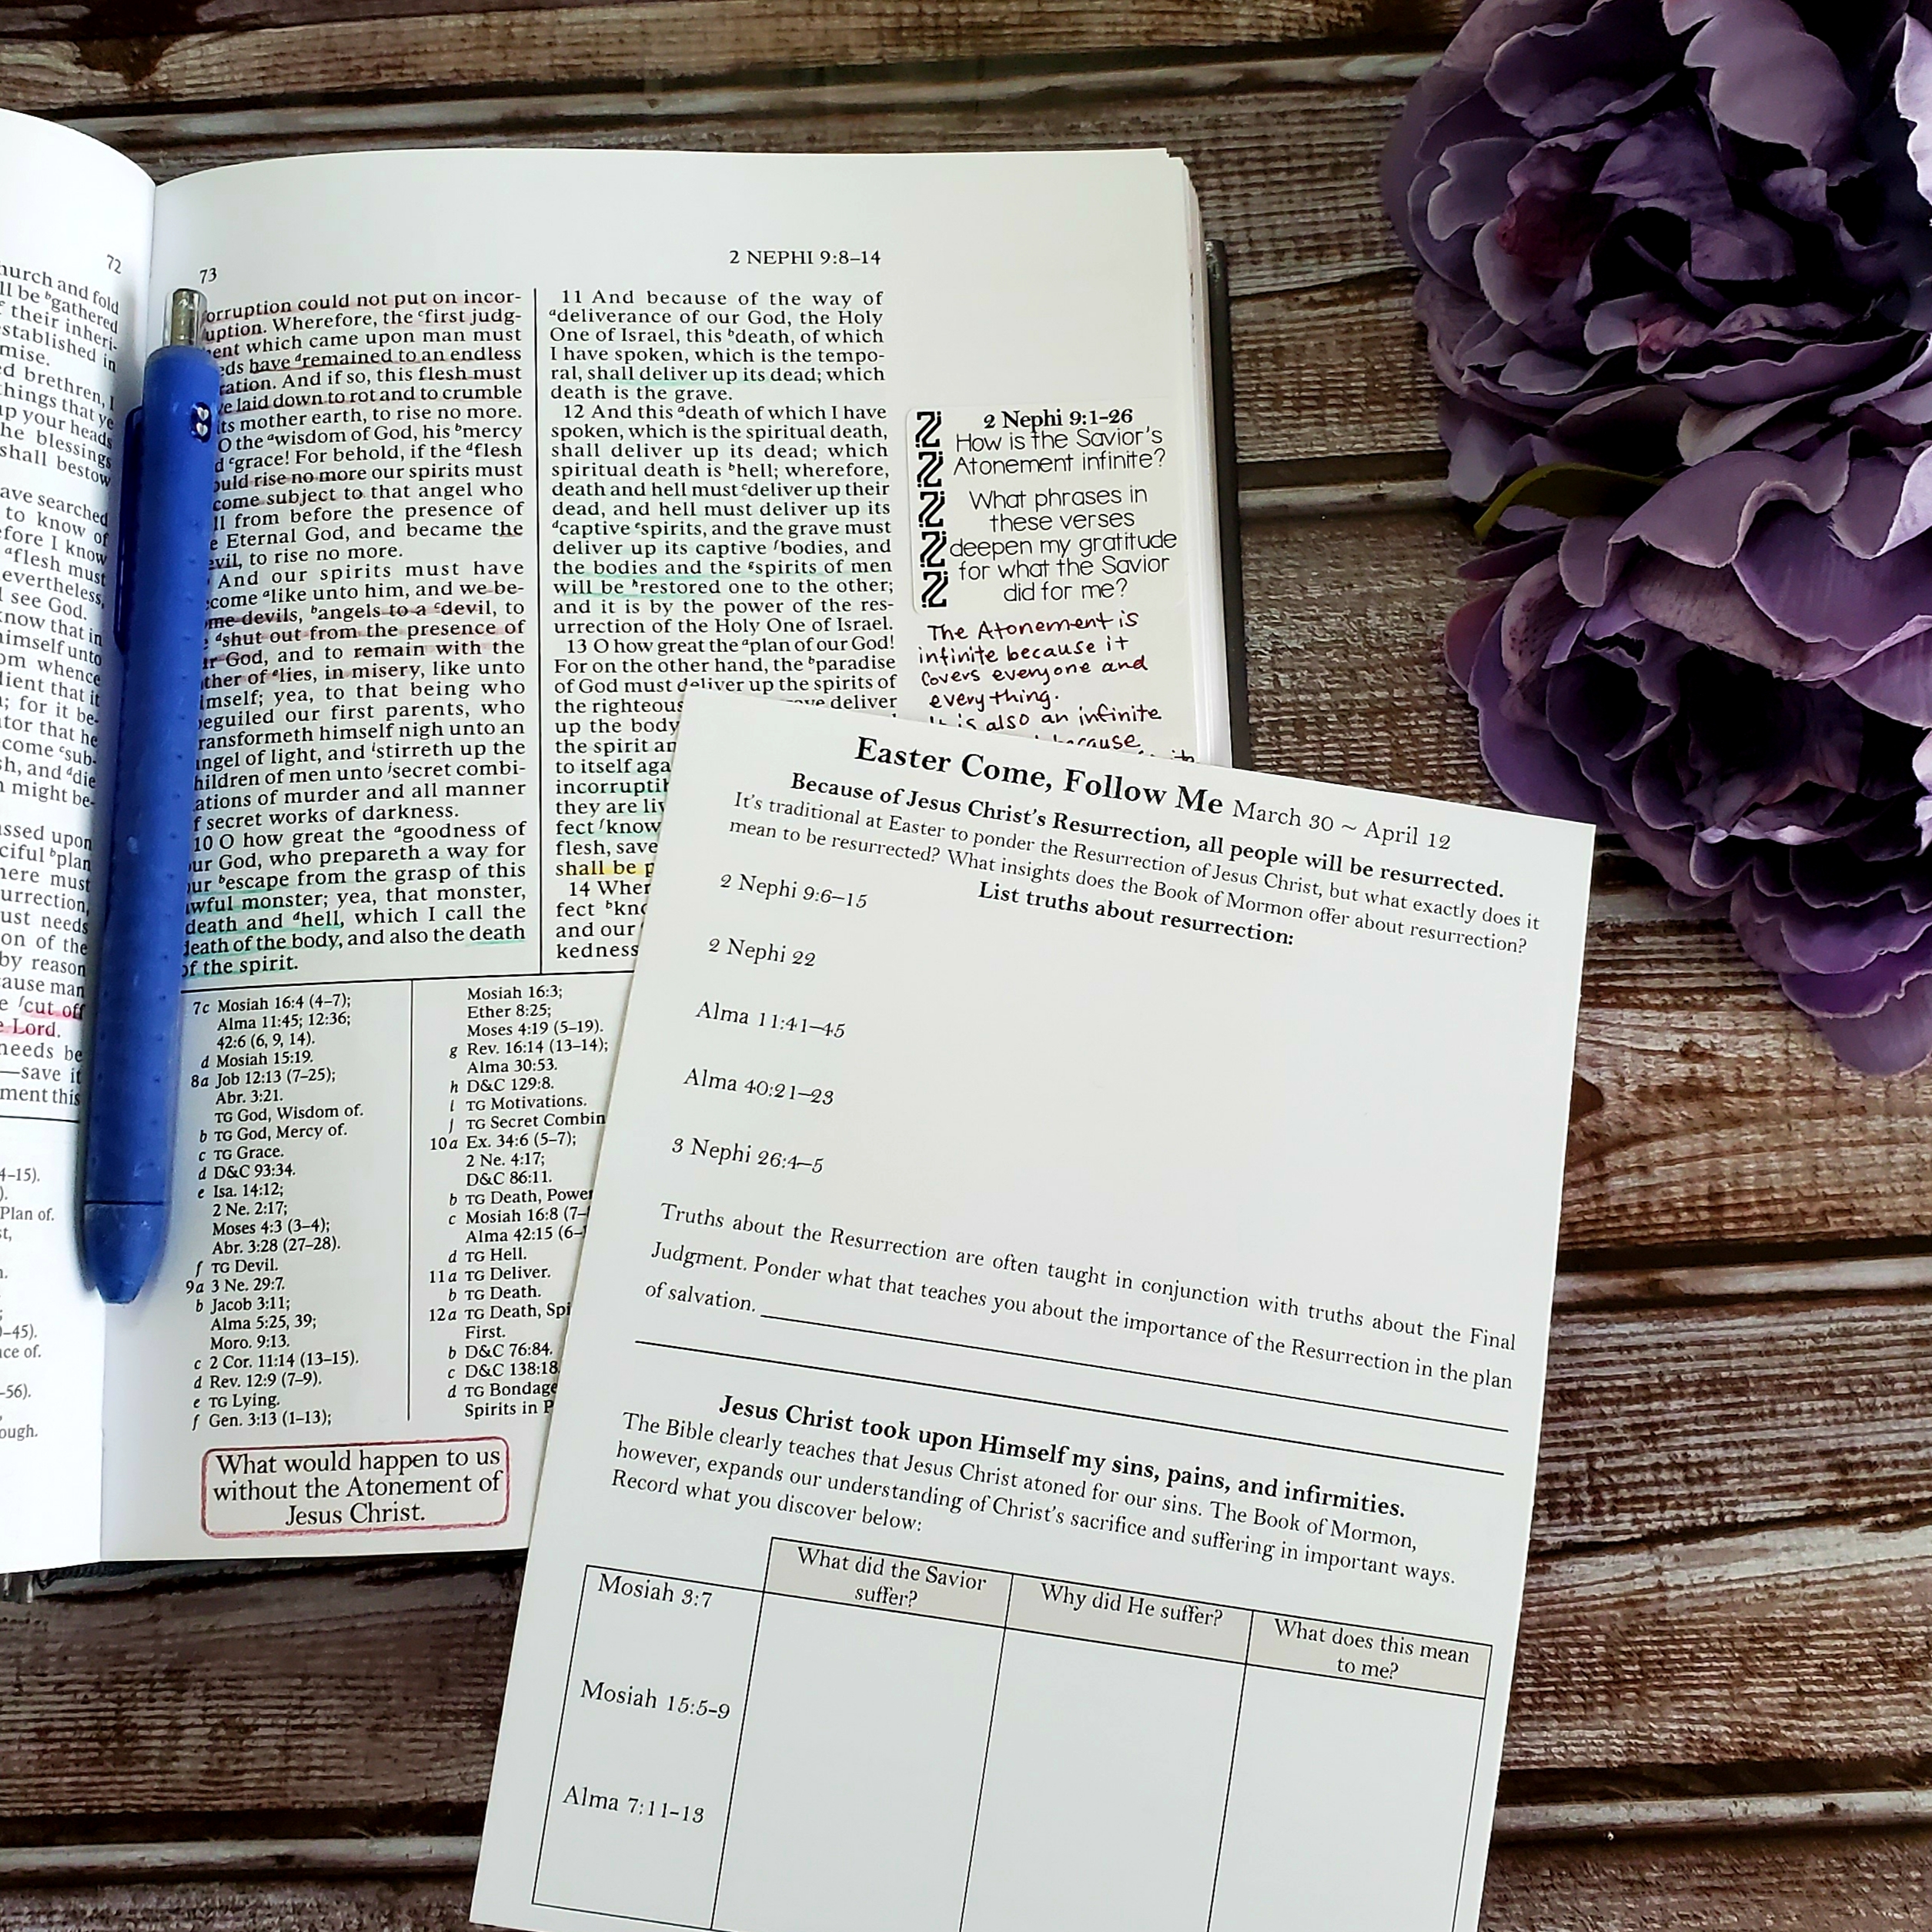 72
hurch and fold
ll be ᵇgathered
f their inheri-
established in
mise.
ed brethren, I
things that ye
up your heads
he blessings
shall bestow
ave searched
to know of
efore I know
ᵃflesh must
evertheless,
l see God.
know that in
himself unto
om whence
dient that it
; for it be-
ator that he
come ᶜsub-
sh, and ᵈdie
n might be-
assed upon
ciful ᵇplan
here must
urrection,
ust needs
on of the
by reason
cause man
e ᶠcut off
e Lord.
needs be
—save it
ment this
4–15).
).
Plan of.
st,
n.
0–45).
nce of.
–56).
ough.
73
2 NEPHI 9:8–14
orruption could not put on incor-
uption. Wherefore, the ᶜfirst judg-
ent which came upon man must
eds have ᵈremained to an endless
ration. And if so, this flesh must
e laid down to rot and to crumble
its mother earth, to rise no more.
O the ᵃwisdom of God, his ᵇmercy
d ᶜgrace! For behold, if the ᵈflesh
ould rise no more our spirits must
come subject to that angel who
ll from before the presence of
e Eternal God, and became the
evil, to rise no more.
And our spirits must have
come ᵃlike unto him, and we be-
ome devils, ᵇangels to a ᶜdevil, to
e ᵈshut out from the presence of
ur God, and to remain with the
ther of ᵉlies, in misery, like unto
imself; yea, to that being who
beguiled our first parents, who
ransformeth himself nigh unto an
angel of light, and ⁱstirreth up the
hildren of men unto ʲsecret combi-
ations of murder and all manner
f secret works of darkness.
10 O how great the ᵃgoodness of
our God, who prepareth a way for
our ᵇescape from the grasp of this
awful monster; yea, that monster,
death and ᵈhell, which I call the
death of the body, and also the death
of the spirit.
11 And because of the way of
ᵃdeliverance of our God, the Holy
One of Israel, this ᵇdeath, of which
I have spoken, which is the tempo-
ral, shall deliver up its dead; which
death is the grave.
12 And this ᵃdeath of which I have
spoken, which is the spiritual death,
shall deliver up its dead; which
spiritual death is ᵇhell; wherefore,
death and hell must ᶜdeliver up their
dead, and hell must deliver up its
ᵈcaptive ᵉspirits, and the grave must
deliver up its captive ᶠbodies, and
the bodies and the ᵍspirits of men
will be ʰrestored one to the other;
and it is by the power of the res-
urrection of the Holy One of Israel.
13 O how great the ᵃplan of our God!
For on the other hand, the ᵇparadise
of God must deliver up the spirits of
the righteous deliver
up the body
the spirit an
to itself aga
incorruptib
they are liv
fect ᶠknow
flesh, save
shall be p
14 Wher
fect ᵇkno
and our
kedness
2 Nephi 9:1-26
How is the Savior's
Atonement infinite?
What phrases in
these verses
deepen my gratitude
for what the Savior
did for me?
The Atonement is
infinite because it
covers everyone and
everything.
It is also an infinite
because
7c Mosiah 16:4 (4–7);
Alma 11:45; 12:36;
42:6 (6, 9, 14).
d Mosiah 15:19.
8a Job 12:13 (7–25);
Abr. 3:21.
TG God, Wisdom of.
b TG God, Mercy of.
c TG Grace.
d D&C 93:34.
e Isa. 14:12;
2 Ne. 2:17;
Moses 4:3 (3–4);
Abr. 3:28 (27–28).
f TG Devil.
9a 3 Ne. 29:7.
b Jacob 3:11;
Alma 5:25, 39;
Moro. 9:13.
c 2 Cor. 11:14 (13–15).
d Rev. 12:9 (7–9).
e TG Lying.
f Gen. 3:13 (1–13);
Mosiah 16:3;
Ether 8:25;
Moses 4:19 (5–19).
g Rev. 16:14 (13–14);
Alma 30:53.
h D&C 129:8.
i TG Motivations.
j TG Secret Combin
10a Ex. 34:6 (5–7);
2 Ne. 4:17;
D&C 86:11.
b TG Death, Power
c Mosiah 16:8 (7–
Alma 42:15 (6–
d TG Hell.
11a TG Deliver.
b TG Death.
12a TG Death, Spi
First.
b D&C 76:84.
c D&C 138:18
d TG Bondage
Spirits in P
What would happen to us
without the Atonement of
Jesus Christ.
Easter Come, Follow Me March 30 ~ April 12
Because of Jesus Christ's Resurrection, all people will be resurrected.
It's traditional at Easter to ponder the Resurrection of Jesus Christ, but what exactly does it
mean to be resurrected? What insights does the Book of Mormon offer about resurrection?
List truths about resurrection:
2 Nephi 9:6–15
2 Nephi 22
Alma 11:41–45
Alma 40:21–23
3 Nephi 26:4–5
Truths about the Resurrection are often taught in conjunction with truths about the Final
Judgment. Ponder what that teaches you about the importance of the Resurrection in the plan
of salvation.
Jesus Christ took upon Himself my sins, pains, and infirmities.
The Bible clearly teaches that Jesus Christ atoned for our sins. The Book of Mormon,
however, expands our understanding of Christ's sacrifice and suffering in important ways.
Record what you discover below:
What did the Savior
suffer?
Why did He suffer?
What does this mean
to me?
Mosiah 3:7
Mosiah 15:5-9
Alma 7:11-13